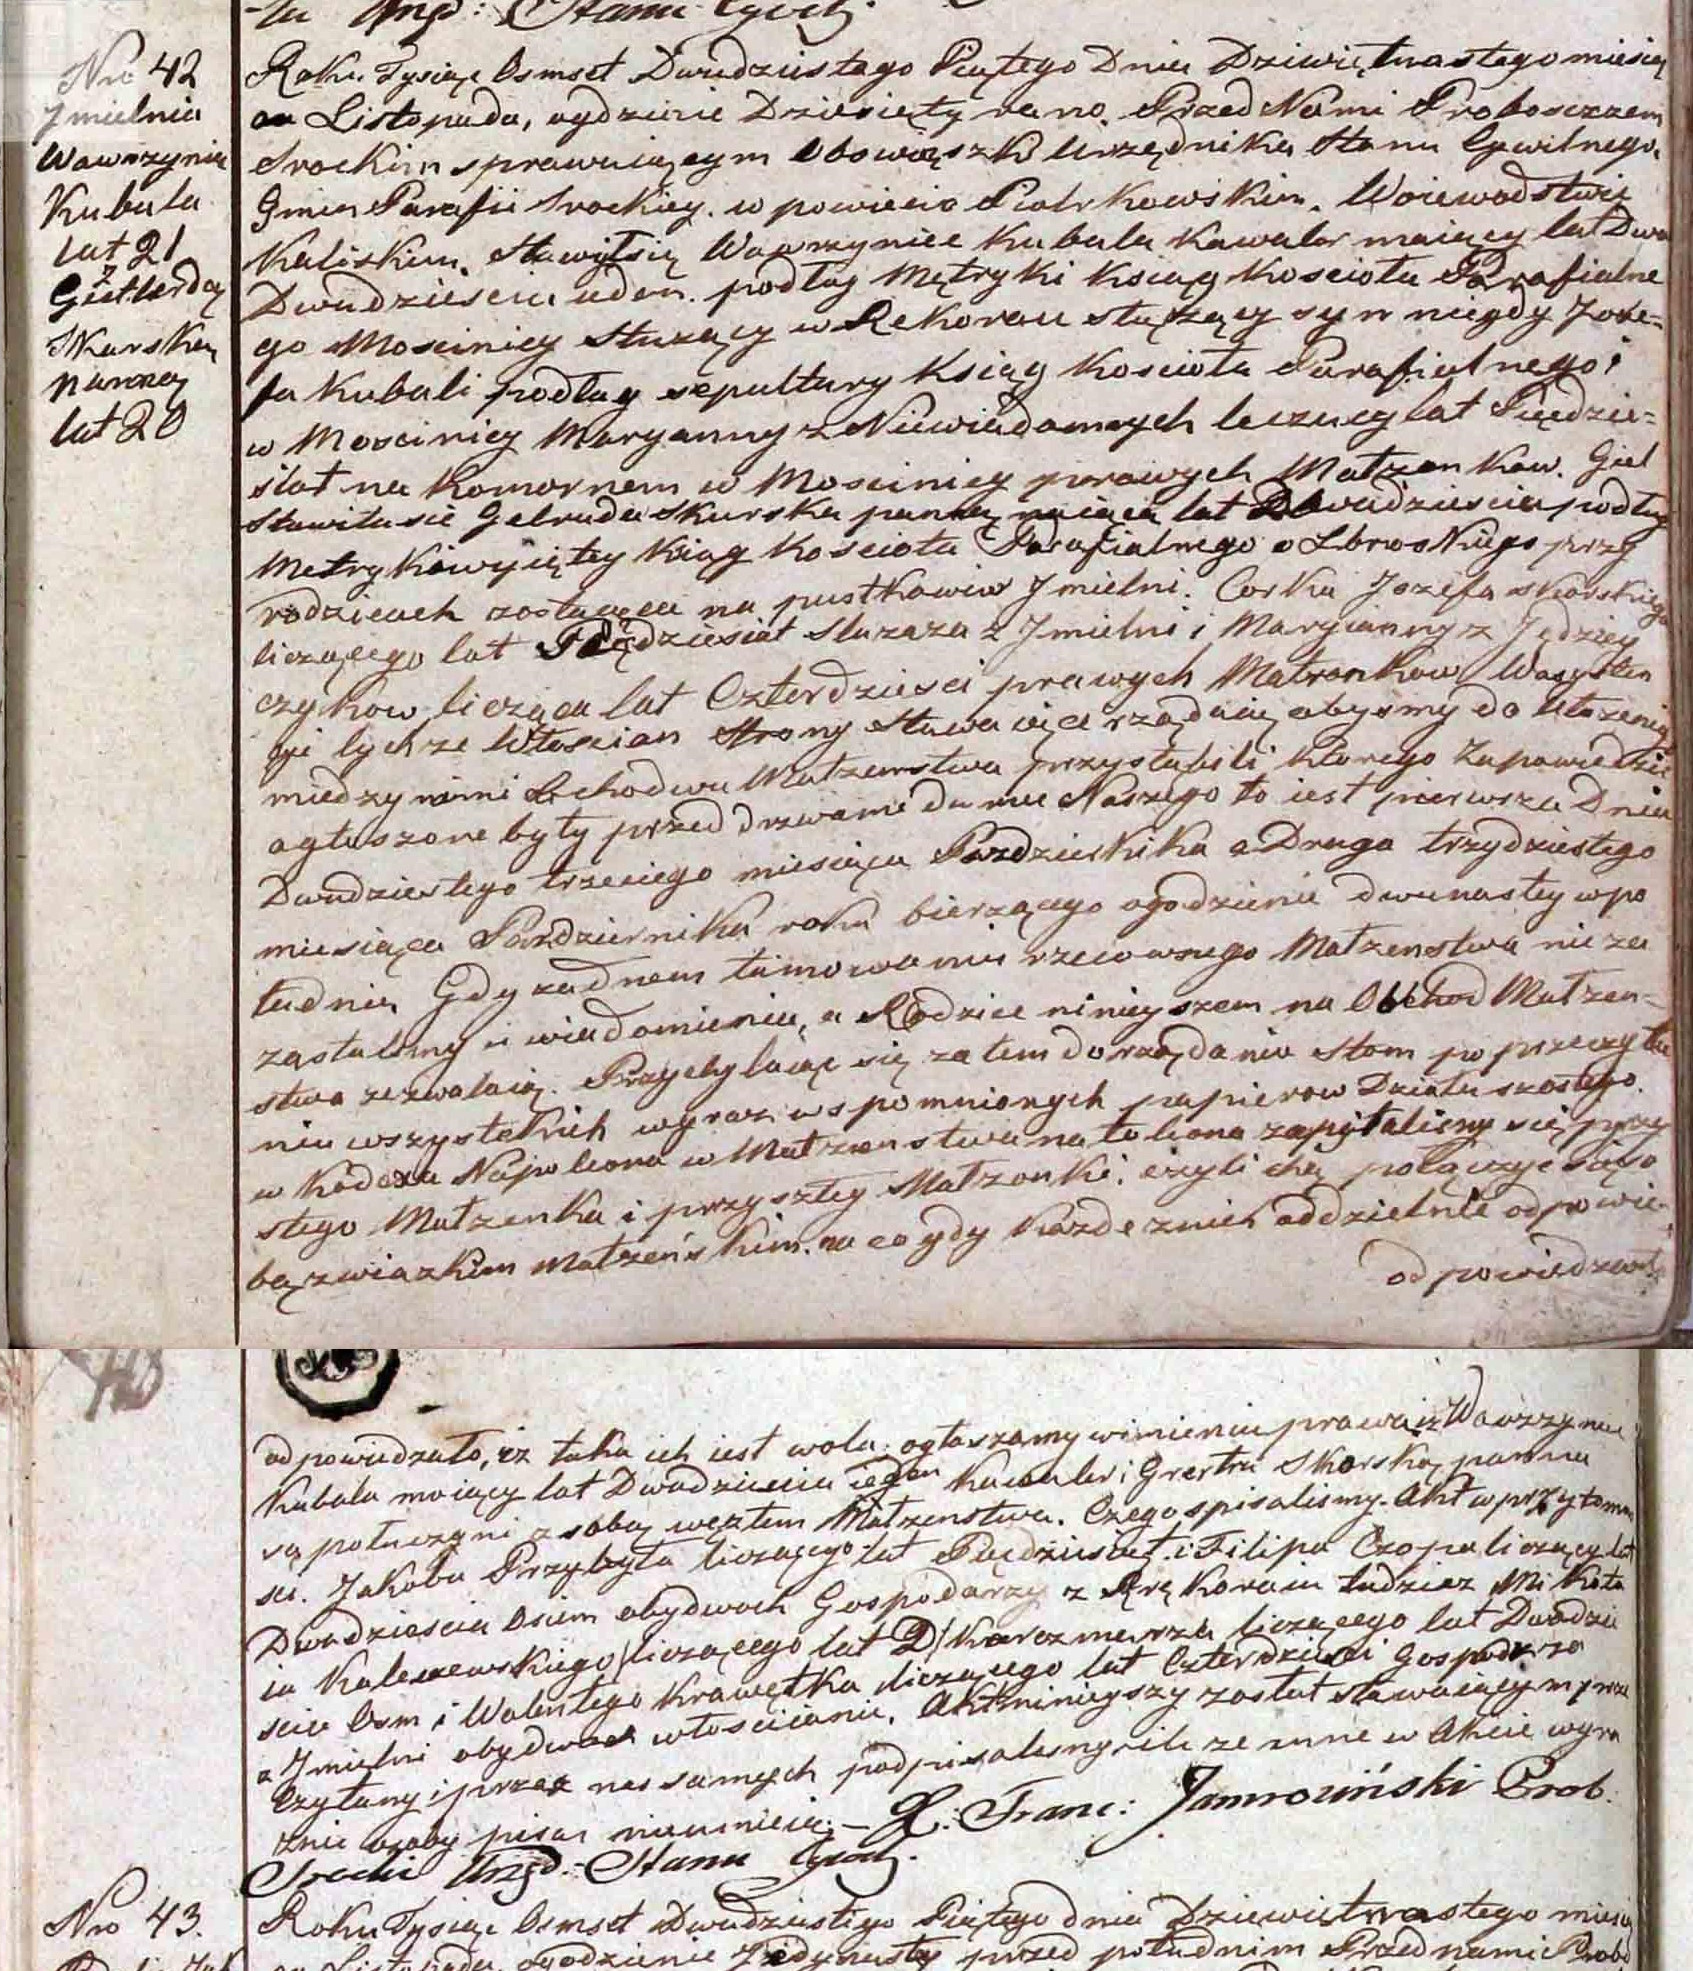 -ta Urzęd: Stanu Cywil:
Nro 42
Jmielnia
Wawrzynia
Kubala
lat 21
z
Giertrudą
Skurską
panną
lat 20
Roku Tysiąc Osmset Dwudziestego Piątego Dnia Dziewiętnastego miesią
ca Listopada, ogdzinie Dziesięty rano. Przed Nami Proboszczem
Srockim sprawuiącym Obowiąszki Urzędnika Stanu Cywilnego,
Gminy Parafii Srockiey. w powiecie Piotrkowskim. Woiewodstwie
Kaliskim. Stawiłsię Wawrzyniec Kubala Kawaler maiący lat Dwa
Dwadziescia ieden. podług Mętryki Ksiąg Koscioła Parafialne
go Mosciniey Słuzący w Rękoraiu słuzący syn niegdy Joze=
fa Kubali podług sepultury Ksiąg Koscioła Parafialnego i
w Mosciniey Maryanny z Niewiadomych liczący lat Pięćdzie=
siat na Komornem w Mosciniey prawych Małzonkow.
Stawiłasie Gelruda Skurska panna maiąca lat Dwadziescia podług
Metryki wyiętey Ksiąg Koscioła Parafialnego przy
rodzicach zostaiąca na pustkowiu Jmielni. Corka Jozefa Skorskiego
liczącego lat Pięćdziesiat Sluzaza z Jmielni i Maryianny z Jędziey
czykow licząca lat Czterdziesci prawych Matzonkow
tychze Włoscian Strony Stawaiące rządaią abysmy do Ułozenia
miedzy niemi Obchodwu Małzenstwa przystąpili ktorego Zapowiedzie
ogłaszone były przed drzwiami domu Naszego to iest pierwsza Dnia
Dwudziestego trzeciego miesiąca Pazdziernika a Druga trzydziestego
miesiąca Pazdziernika roku bierzącego ogodzinie dwunastey wpo
ludnia Gdy zadnem tamowaniu rzeczonego Małzenstwa nieza
zastalismy i wiadomienia, a Rodzice niniejszem na Obchod Małzen=
stwa zezwalaią. Przychylaiąc się zatem dorządania Stom po przeczyta
niu wszystkich wyraz wspomnionych papierow Działu szostego.
w Kodexa Napoleona w Małzenstwa zapytalismy się przy
stego Małzonka i przyszłey Małzonki, czyli chcą połączyc się so
bą zwiazkiem Małzeńskim. na co gdy Kazde znich oddzielnie odpowie=
odpowiedzało
odpowiedzało, iz taka ich iest wola: ogłaszamy wimieniu prawa iz Wawrzyniec
Kubala maiący lat Dwadziescia ieden Kawaler i Skorska, panna
są połączyni z sobą węzłem Małzenstwa. Czego spisalismy Akt w przytomno
sci. Jakoba Przybyła liczącego lat Pięćdziesiąt i Filipa Czopa liczący lat
Dwadziescia Osiem obydwoch Gospodarzy z Rękoraiu tudziez Mikoła
ia Kalezewskiego liczącego lat D Karczmarza liczącego lat Dwadzie
scia Osm i Walentego Krawętka liczącego lat Czterdziesci Gospodarza
z Jmielni obydwoch włoscianie. Akt niniejszy został stawaiącym prze
czytany i przez nas samych podpisalismy ile ze inne w Akcie wyra
znie osoby pisac nieumieią. — X. Franc: Jamrozinski Prob:
Srocki Urzęd: Stanu Cywil:
Nro 43.
Roku Tysiąc Osmset Dwudziestego Piątego dnia Dziewiętnastego miesią
ca Listopada ogodzinie Jedynasty przed południm Przed nami Probo